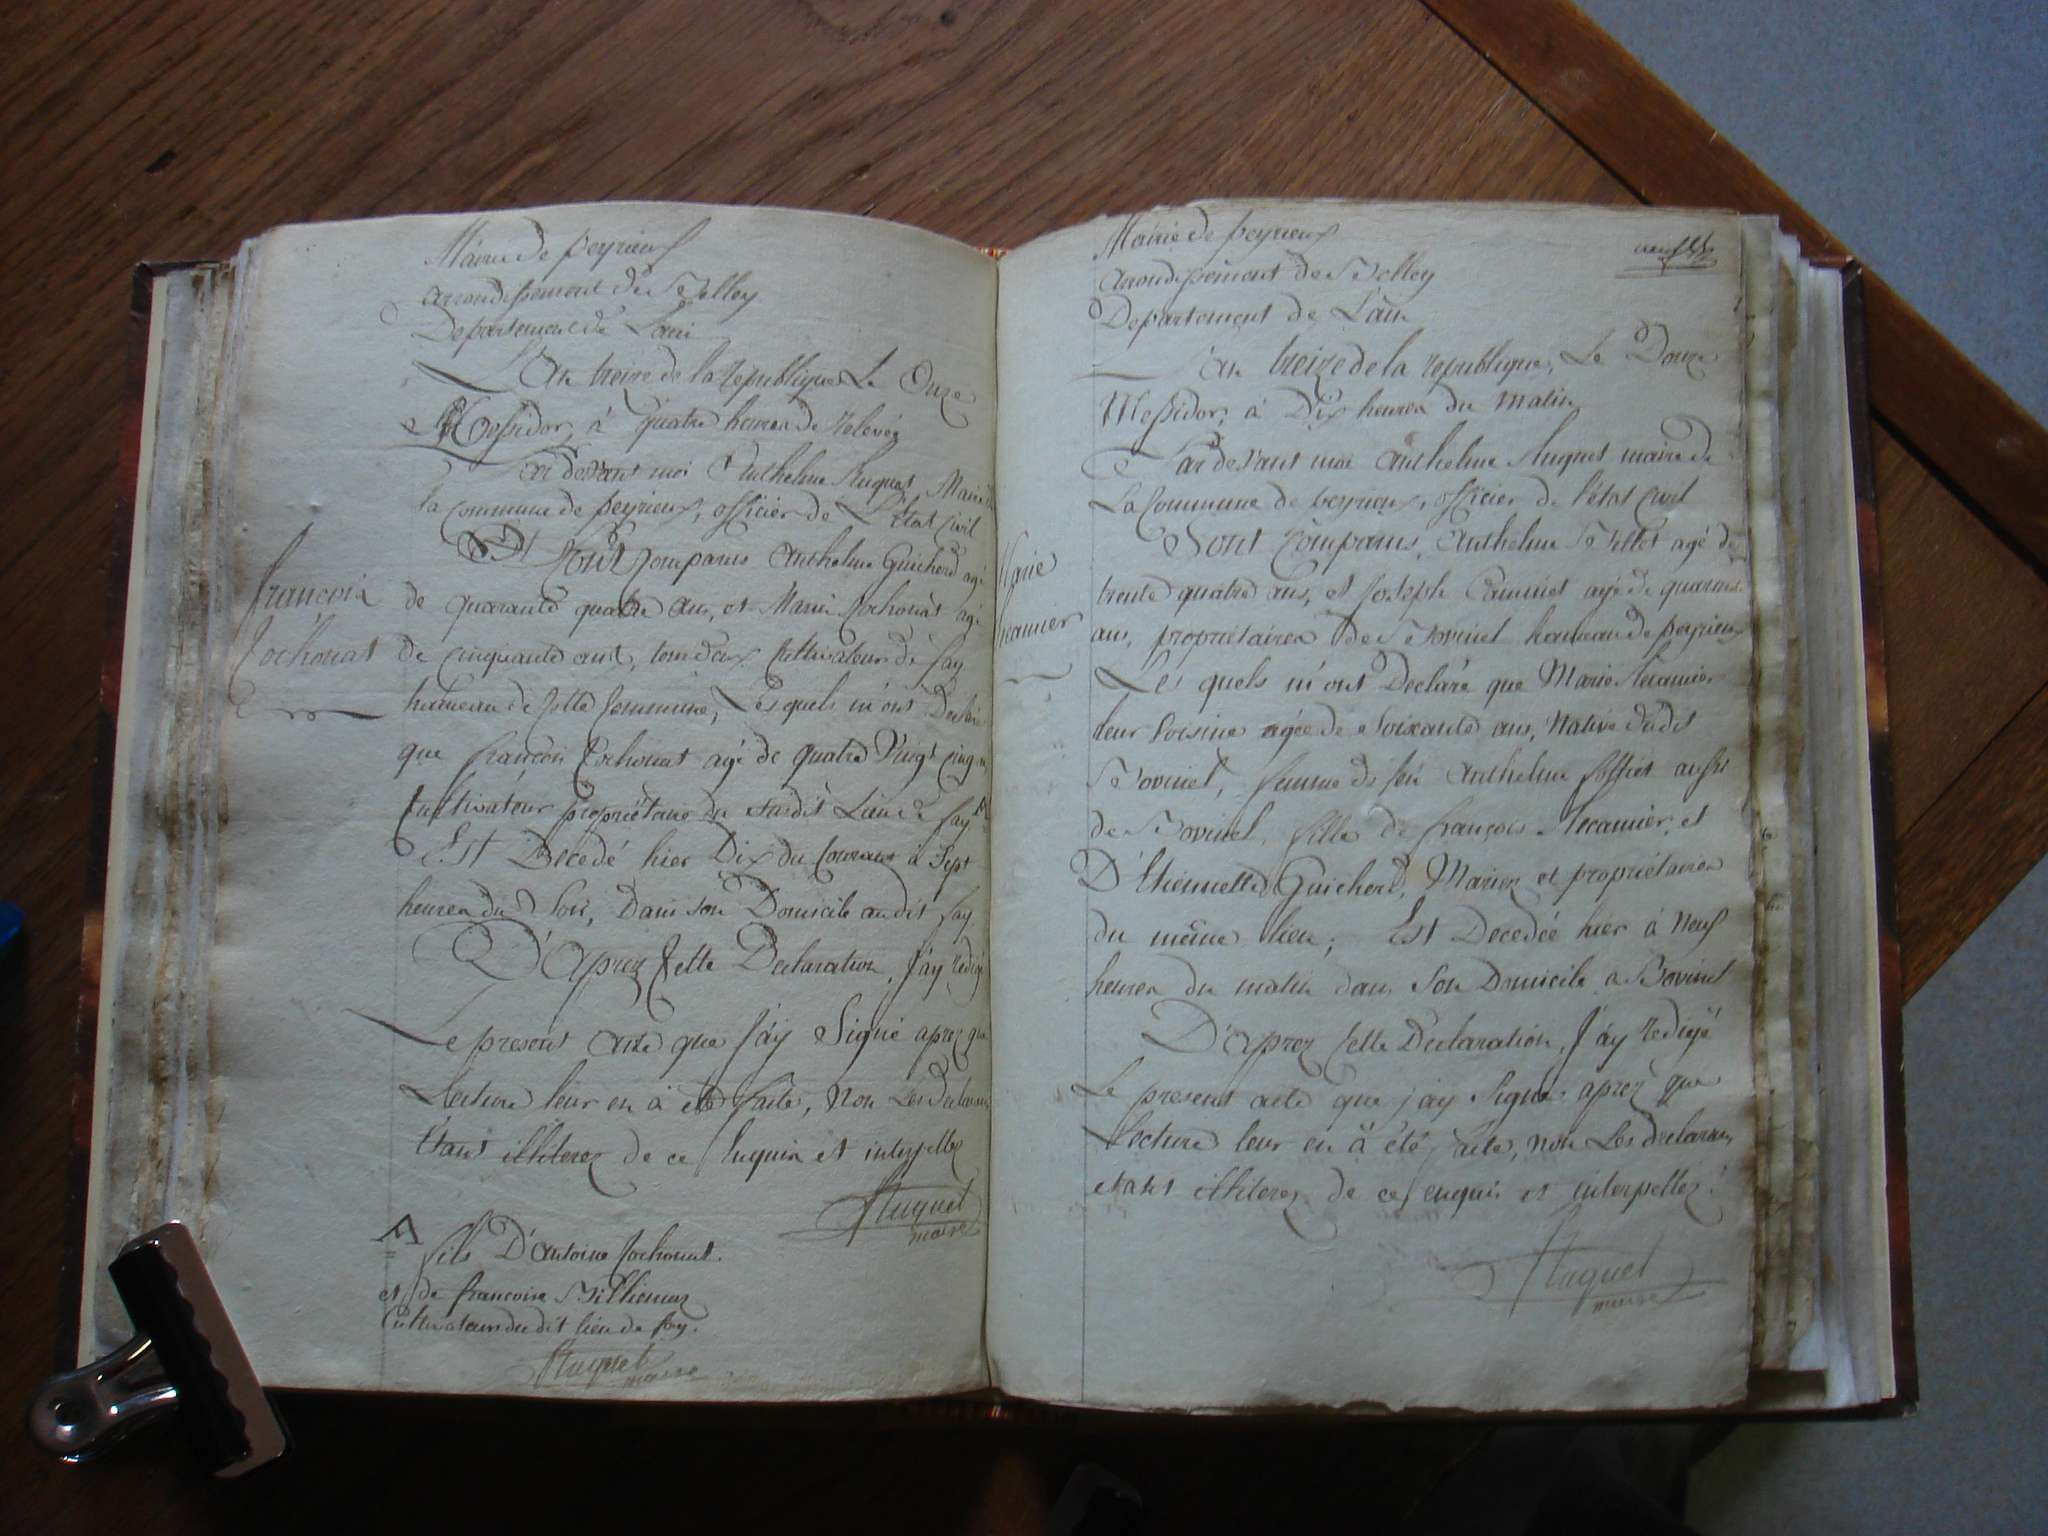 Mairie de peyrieux
arrondissement de Belley
Departement de Lain
L'an treize de la republique Le Onze
Messidor, à quatre heures de relevée
Par devant moi Anthelme Huguet, Maire de
la commune de peyrieux, officier de L'état Civil
Sont Comparus Anthelme Guicherd agé
de quarante quatre ans, et Marin Cochonat agé
de cinquante ans, tous deux Cultivateurs de fay
hameau de Cette Commune, Lesquels m'ont Declaré
que françois Cochonat agé de quatre Vingt cinq
Cultivateur propriétaire du susdit Lieu de fay A
Est Decedé hier Dix du Courant à Sept
heures du Soir, Dans son Domicile audit fay
D'Aprez Cette Declaration, J'ay redigé
Le present acte que J'ay Signé aprez que
Lecture leur en à été faite, Non Les declarans
Etant illiterez de ce Enquis et interpellez
Huguet
maire
françois
Cochonat
A
fils D'antoine Cochonat
et de francoise Billiemaz
Cultivateurs du dit lieu de fay.
Huguet
maire
Mairie de peyrieux
Arrondissement de Belley
Departement de L'ain
L'an treize de la republique, Le Douze
Messidor, à Dix heures du Matin
Par devant moi Anthelme Huguet maire de
La Commune de peyrieux, officier de l'état Civil
Sont Comparus, Anthelme Billet agé de
trente quatre ans, et Joseph agé de quarante
ans, propriétaires de Bovinel hameau de peyrieux
Les quels m'ont Declaré que Marie Recamier
leur Voisine agée de Soixante ans, Native dudit
Bovinel, femme de feu Anthelme aussi
de Bovinel, fille de françois Recamier, et
D'Etiennette Guicherd, Mariez et propriétaires
du même lieu, Est Decedée hier à Neuf
heures du matin dans Son Domicile a Bovinel
D'Aprez Cette Declaration, J'ay redigé
Le present acte que j'ay Signé aprez que
Lecture leur en à été faite, non Les declarans
etant illiterez de ce enquis et interpellez.
Huguet
maire
Marie
Recamier